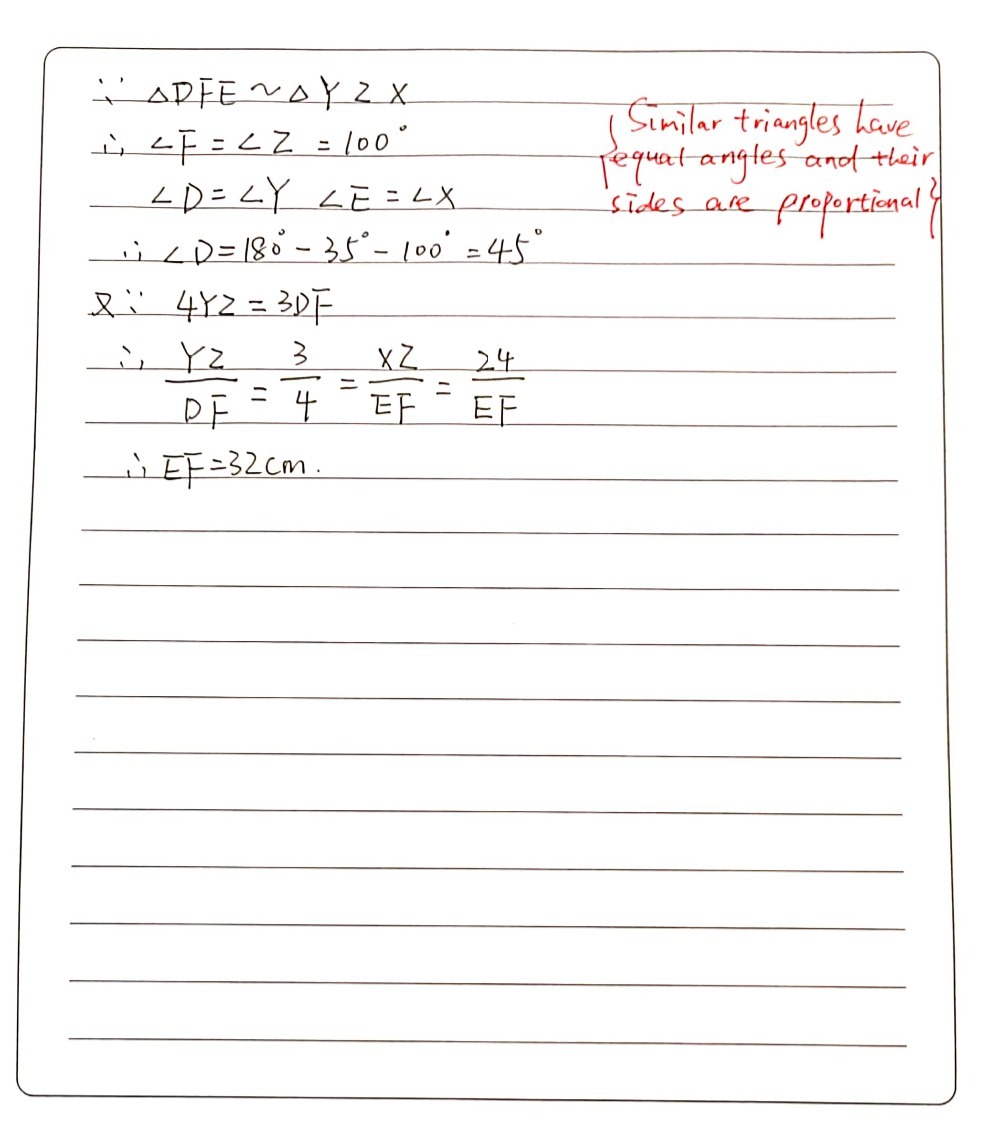 ∵ △DFE ~ △YZX
∴ ∠F = ∠Z = 100°
∠D = ∠Y ∠E = ∠X
∴ ∠D = 180° - 35° - 100° = 45°
又∵ 4YZ = 3DF
∴ YZ/DF = 3/4 = XZ/EF = 24/EF
∴ EF = 32cm.
{Similar triangles have
equal angles and their
sides are proportional}